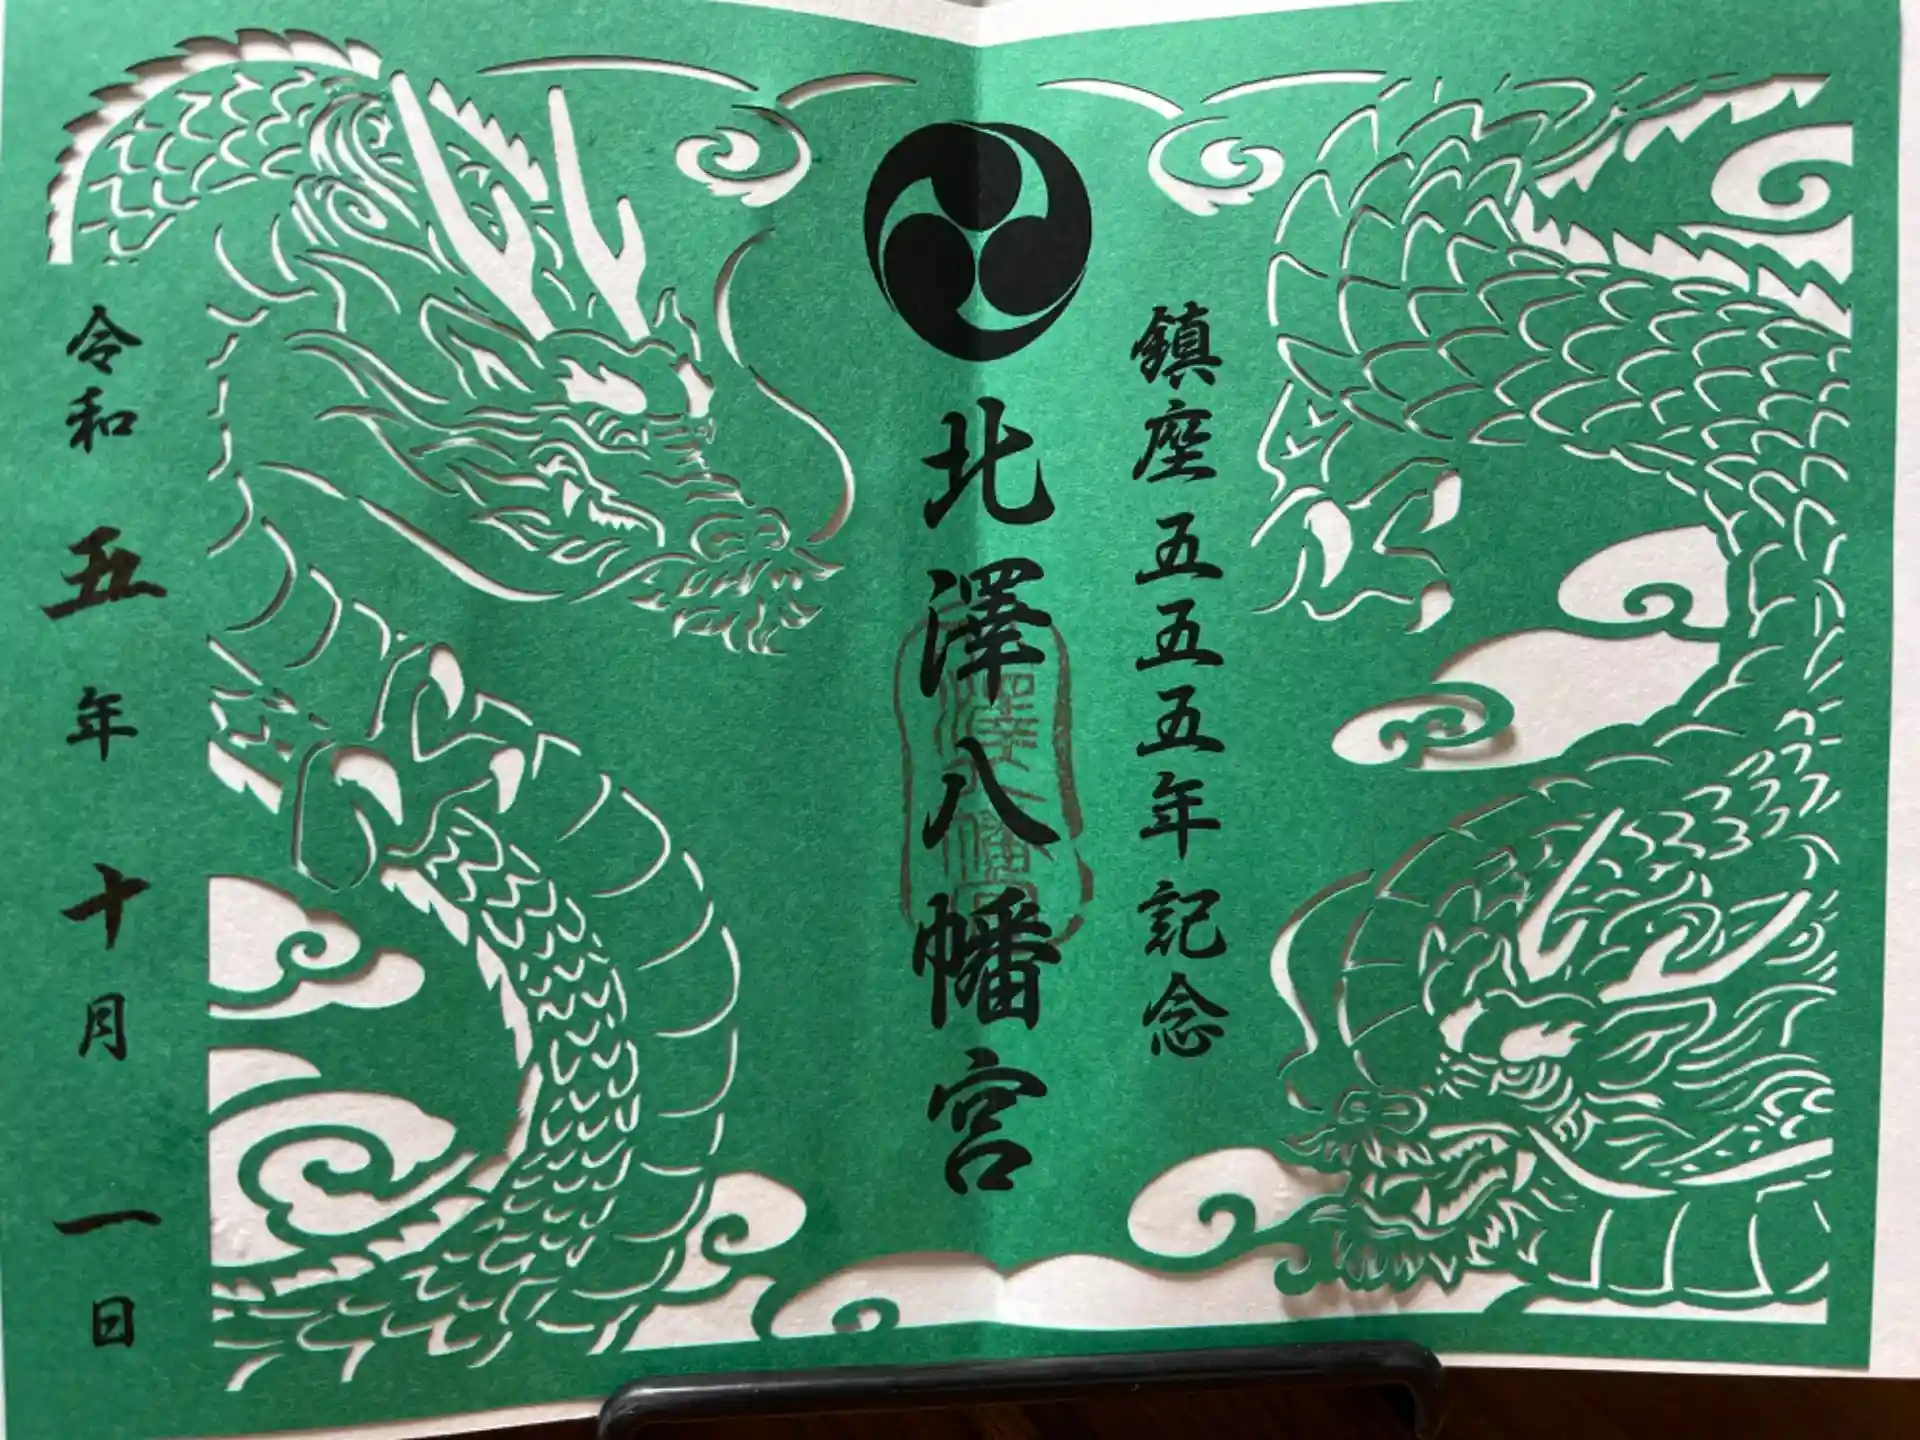 鎮座五五五年記念
北澤八幡宮
令和五年十月一日